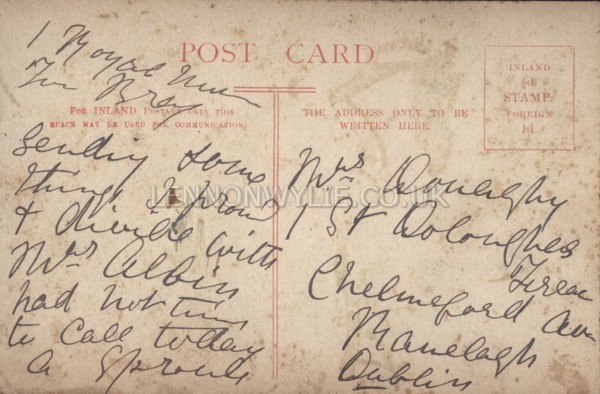 1 Royal
Bray
POST CARD
FOR INLAND POSTAGE ONLY THIS
SPACE MAY BE USED FOR COMMUNICATION.
THE ADDRESS ONLY TO BE
WRITTEN HERE.
INLAND
½d
STAMP
FOREIGN
1d.
sending some
things
& divide with
Mrs Albin
had not time
to call today
a Sproule
Mrs Donaghy
1 St
Terrace
Chelmsford Ave
Ranelagh
Dublin
LENNONWYLIE.CO.UK